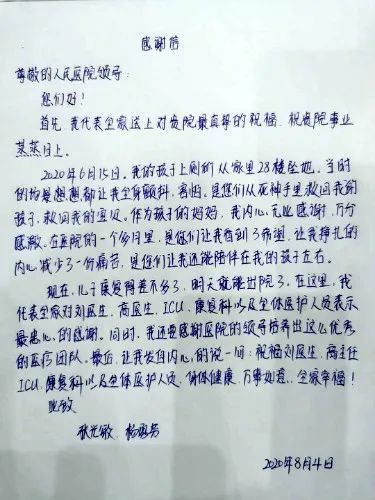 感谢信
尊敬的人民医院领导：
您们好！
首先，我代表全家送上对贵院最真挚的祝福，祝贵院事业
蒸蒸日上。
2020年6月15日。我的孩子上厕所从家里28楼坠地。当时
的场景想想都让我全身颤抖，害怕。是您们从死神手里救回我的
孩子，救回我的宝贝。作为孩子的妈妈，我内心无比感谢，万分
感激。在医院的一个多月里，是您们让我看到了希望，让我挣扎的
内心减少了一份痛苦，是您们让我还能陪伴在我的孩子左右。
现在，儿子康复得差不多了，明天就能出院了。在这里，我
代表全家对刘医生，高医生，ICU，康复科以及全体医护人员表示
最衷心的感谢。同时，我还要感谢医院的领导培养出这么优秀
的医疗团队。最后，让我发自内心的说一句：祝福刘医生，高主任
ICU，康复科以及全体医护人员，身体健康，万事如意，全家幸福！
此致
敬 杨
2020年8月4日